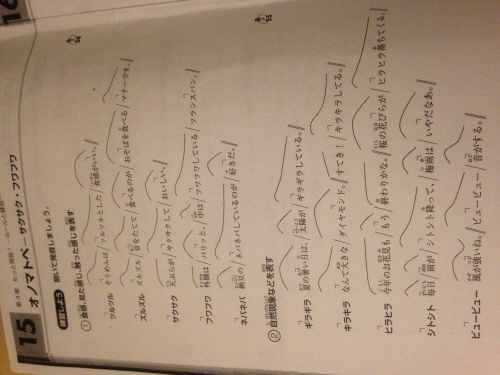 15
第4章 もっと実践！
オノマトペーサクサク・フワフワ
練習しよう 聞いて発音しましょう。
①食感、見た感じ、触った感じを表す
54
ツルツル そうめんは/ツルツルとした/食感がいい。
ズルズル ズルズル/音をたてて/食べるのが/おそばを食べる/マナーです。
サクサク 天ぷらが/サクサクして/おいしい。
フワフワ 外側は/パリッと、/中は/フワフワしている/フランスパン。
ネバネバ 納豆の/ネバネバしているのが/好きだ。
②自然現象などを表す
55
ギラギラ 夏の暑い日は、/太陽が/ギラギラしている。
キラキラ なんて大きな/ダイヤモンド。/すてき！/キラキラしてる。
ヒラヒラ 今年のお花見も/もう/終わりかな。/桜の花びらが/ヒラヒラ/落ちてくる。
シトシト 毎日/雨が/シトシト降って、/梅雨は/いやだなあ。
ビュービュー 風が強いね。/ビュービュー/音がする。
16